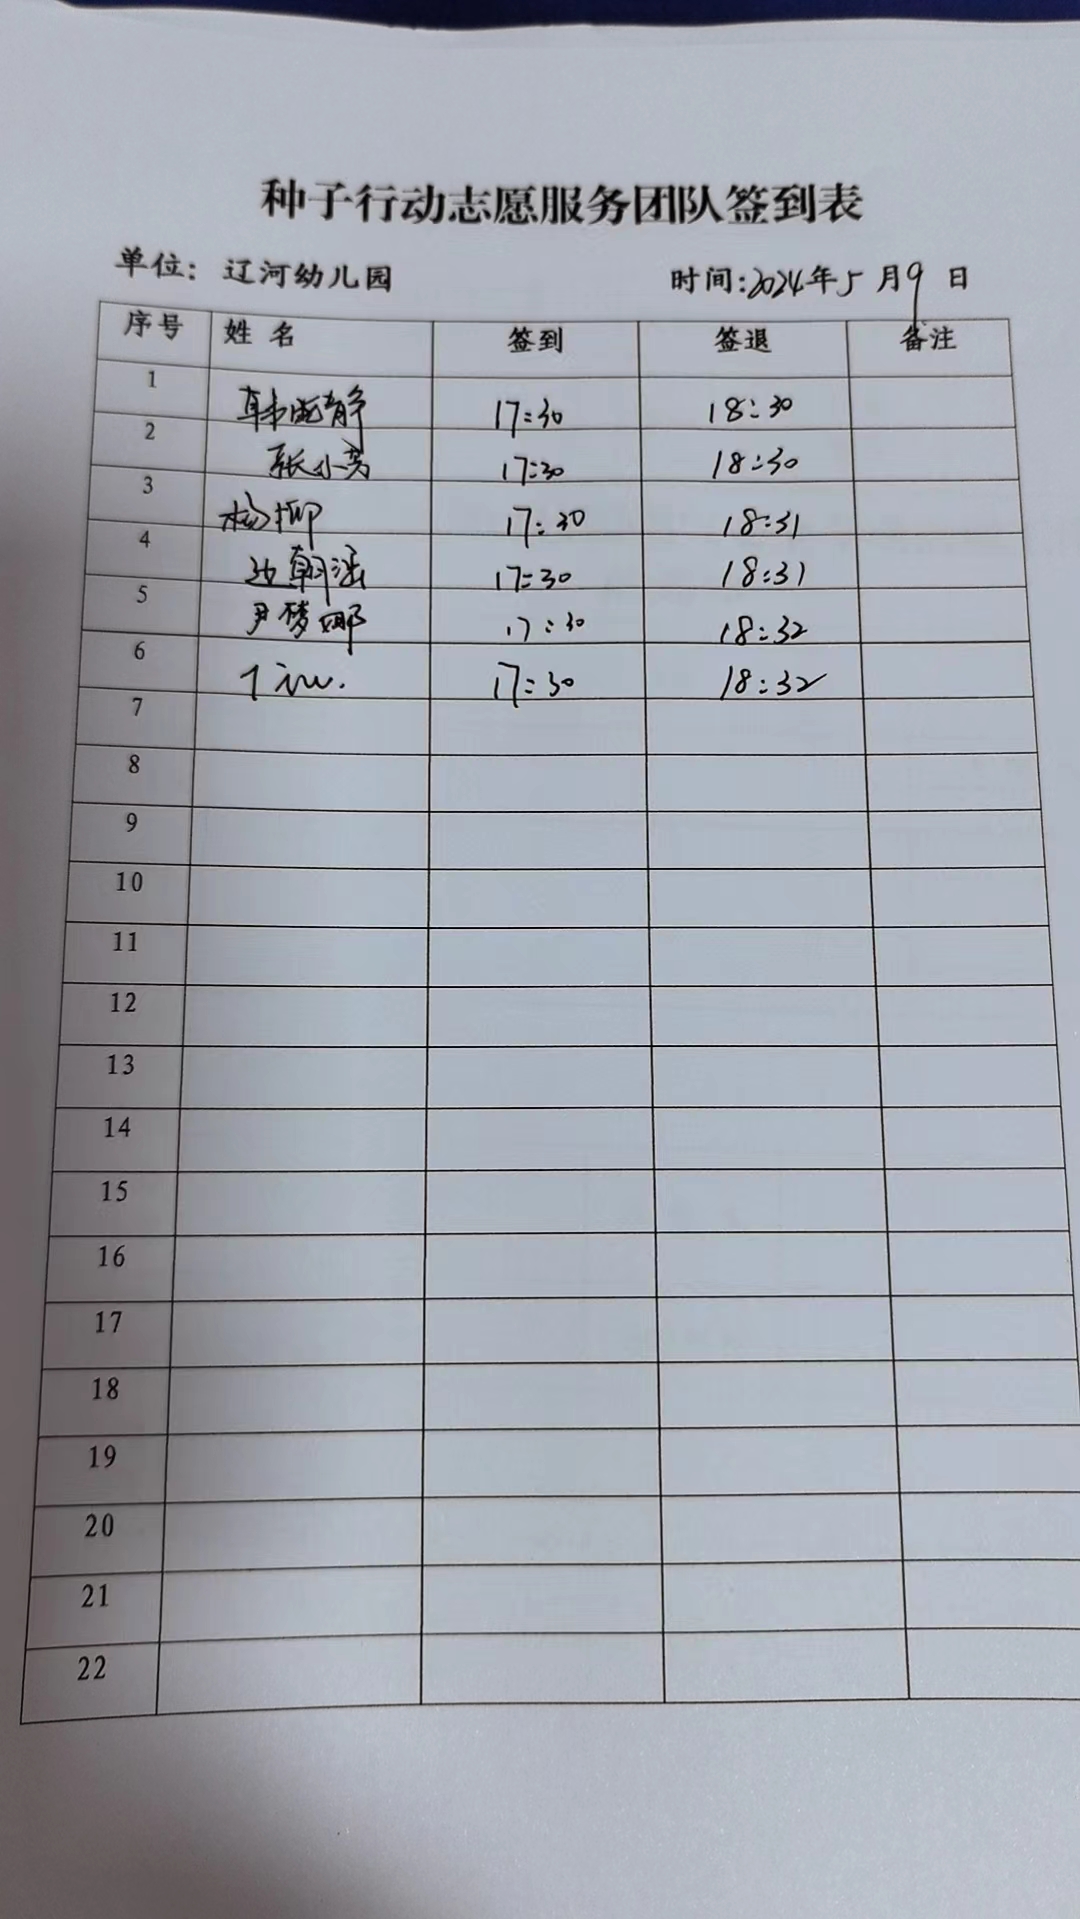 种子行动志愿服务团队签到表
单位：辽河幼儿园 时间:2024年5月9日
序号 姓名 签到 签退 备注
1 韩晓静 17:30 18:30
2 张小芳 17:30 18:30
3 杨柳 17:30 18:31
4 朝 17:30 18:31
5 尹梦娜 17:30 18:32
6 17:30 18:32
7
8
9
10
11
12
13
14
15
16
17
18
19
20
21
22